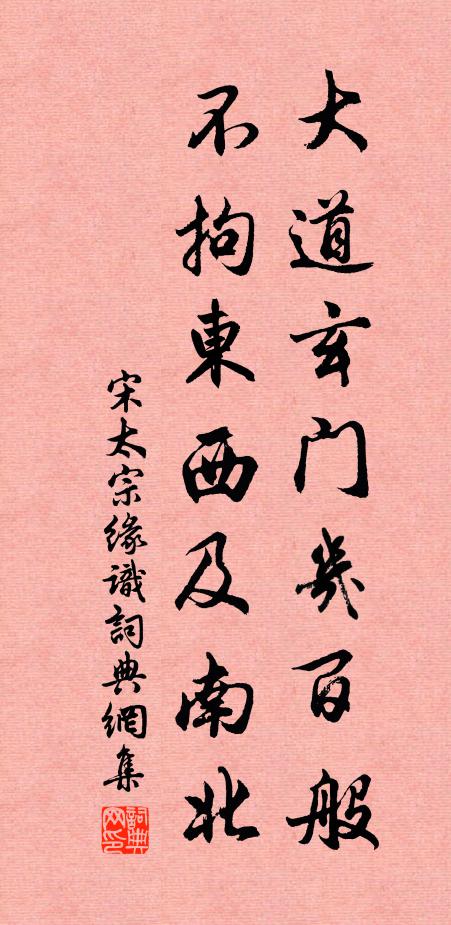 大道玄门几百般
不拘東西及南北
宋太宗緣識詞典網集
詞典网印